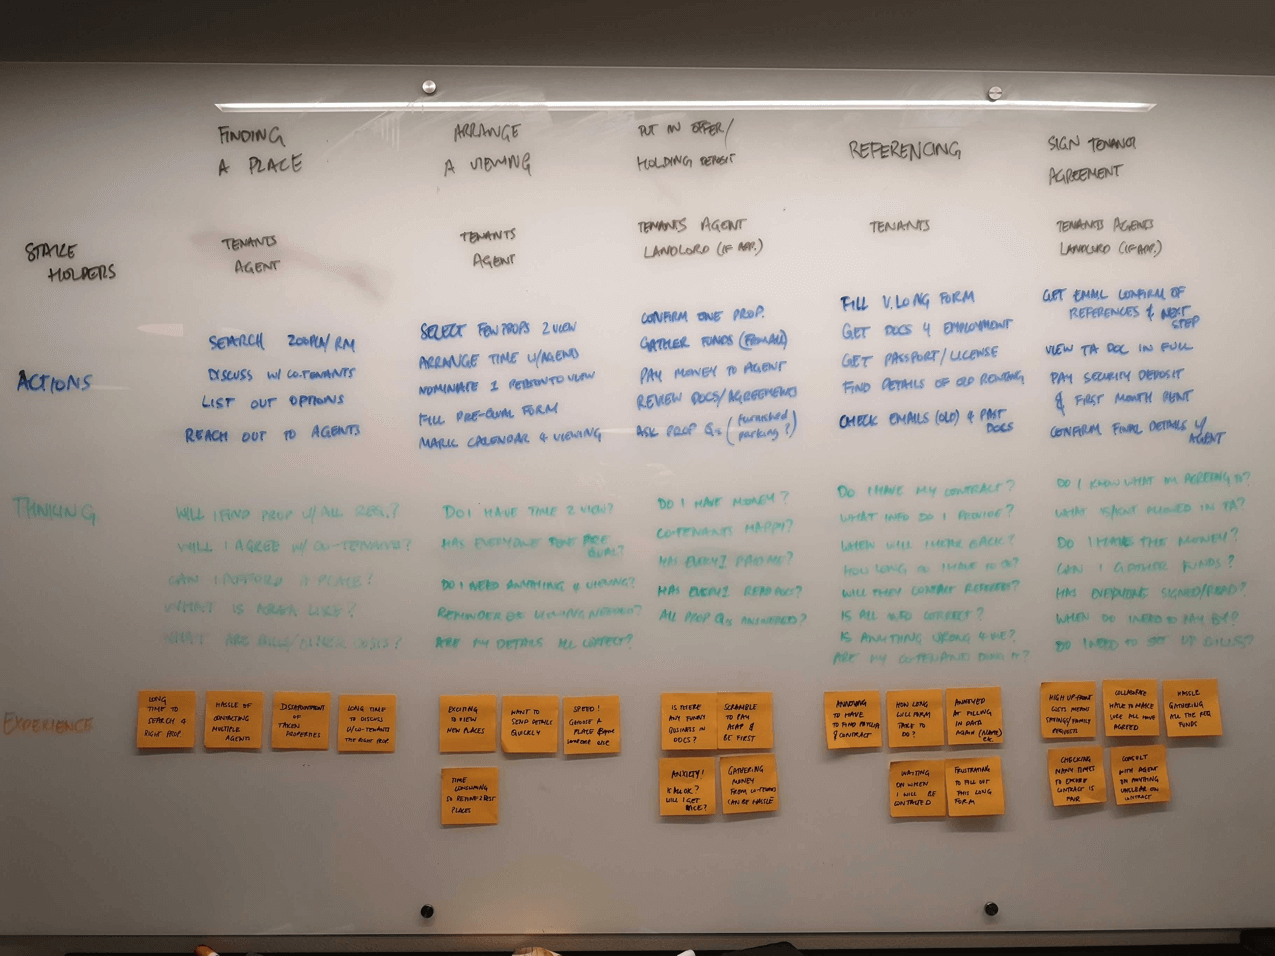 FINDING
A PLACE
ARRANGE
A VIEWING
PUT IN OFFER/
HOLDING DEPOSIT
REFERENCING
SIGN
AGREEMENT
STAKE
HOLDERS
TENANTS
AGENT
TENANTS
AGENT
TENANTS AGENT
LANDLORD (IF APP.)
TENANTS
TENANTS AGENTS
LANDLORD (IF APP.)
ACTIONS
SEARCH ZOOPLA/RM
DISCUSS W/ CO-TENANTS
LIST OUT OPTIONS
REACH OUT TO AGENTS
SELECT FEW PROPS 2 VIEW
ARRANGE TIME W/AGEND
NOMINATE 1 PERSON TO VIEW
FILL PRE-QUAL FORM
MARK CALENDAR 4 VIEWING
CONFIRM ONE PROP.
GATHER FUNDS
PAY MONEY TO AGENT
REVIEW DOCS/AGREEMENTS
ASK PROP Qs (furnished
parking?)
FILL V.LONG FORM
GET DOCS 4 EMPLOYMENT
GET PASSPORT/LICENSE
FIND DETAILS OF OLD RENTING
CHECK EMAILS (OLD) 4 PAST
DOCS
GET EMAIL CONFIRM OF
REFERENCES & NEXT
STEP
VIEW TA DOC IN FULL
PAY SECURITY DEPOSIT
& FIRST MONTH RENT
CONFIRM FINAL DETAILS W/
AGENT
THINKING
WILL I FIND PROP W/ ALL REQ.?
WILL I AGREE W/ CO-TENANTS?
CAN I AFFORD A PLACE?
WHAT IS AREA LIKE?
WHAT ARE BILLS/
DO I HAVE TIME 2 VIEW?
HAS EVERYONE PRE
QUAL?
DO I NEED ANYTHING 4 VIEWING?
REMINDER OF VIEWING NEEDED?
ARE MY DETAILS ALL CORRECT?
DO I HAVE MONEY?
CO-TENANTS HAPPY?
HAS EVERY1 PAID ME?
HAS EVERY1 READ DOCS?
ALL PROP Qs ANSWERED?
DO I HAVE MY CONTRACT?
WHAT INFO DO I PROVIDE?
WHEN WILL I HEAR BACK?
HOW LONG DO I HAVE TO DO?
WILL THEY CONTACT REFEREES?
IS ALL INFO CORRECT?
IS ANYTHING WRONG 4 ME?
ARE MY CO-TENANTS DOING IT?
DO I KNOW WHAT IM AGREEING TO?
WHAT IS/ISNT ALLOWED IN TA?
DO I HAVE THE MONEY?
CAN I GATHER FUNDS?
HAS EVERYONE SIGNED/READ?
WHEN DO I NEED TO PAY BY?
DO I NEED TO SET UP BILLS?
EXPERIENCE
LONG
TIME TO
SEARCH 4
RIGHT PROP
HASSLE OF
CONTACTING
MULTIPLE
AGENTS
DISAPPOINTMENT
OF
TAKEN
PROPERTIES
LONG TIME
TO DISCUSS
W/CO-TENANTS
THE RIGHT PROP
EXCITING
TO VIEW
NEW PLACES
WANT TO
SEND DETAILS
QUICKLY
SPEED!
CHOOSE A
PLACE
SOMEONE ELSE
TIME
CONSUMING
PLACES
IS THERE
ANY FUNNY
BUSINESS IN
DOCS?
SCRAMBLE
TO PAY
ASAP &
BE FIRST
ANXIETY!
IS ALL OK?
WILL I GET
PLACE?
GATHERING
MONEY
FROM CO-TENANTS
CAN BE HASSLE
ANNOYING
TO HAVE
TO FIND PAYSLIP
& CONTRACT
HOW LONG
WILL FORM
TAKE TO
DO?
ANNOYED
AT FILLING
IN DATA
AGAIN (NAME)
etc.
WAITING
ON WHEN
I WILL BE
CONTACTED
FRUSTRATING
TO FILL OUT
THIS LONG
FORM
HIGH UP-FRONT
COSTS MEANS
SAVINGS/FAMILY
REQUESTS
COLLABORATE
HARD TO MAKE
SURE ALL HAVE
AGREED
HASSLE
GATHERING
ALL THE REQ.
FUNDS
CHECKING
MANY TIMES
TO ENSURE
CONTRACT IS
FAIR
CONSULT
WITH AGENT
ON ANYTHING
UNCLEAR ON
CONTRACT